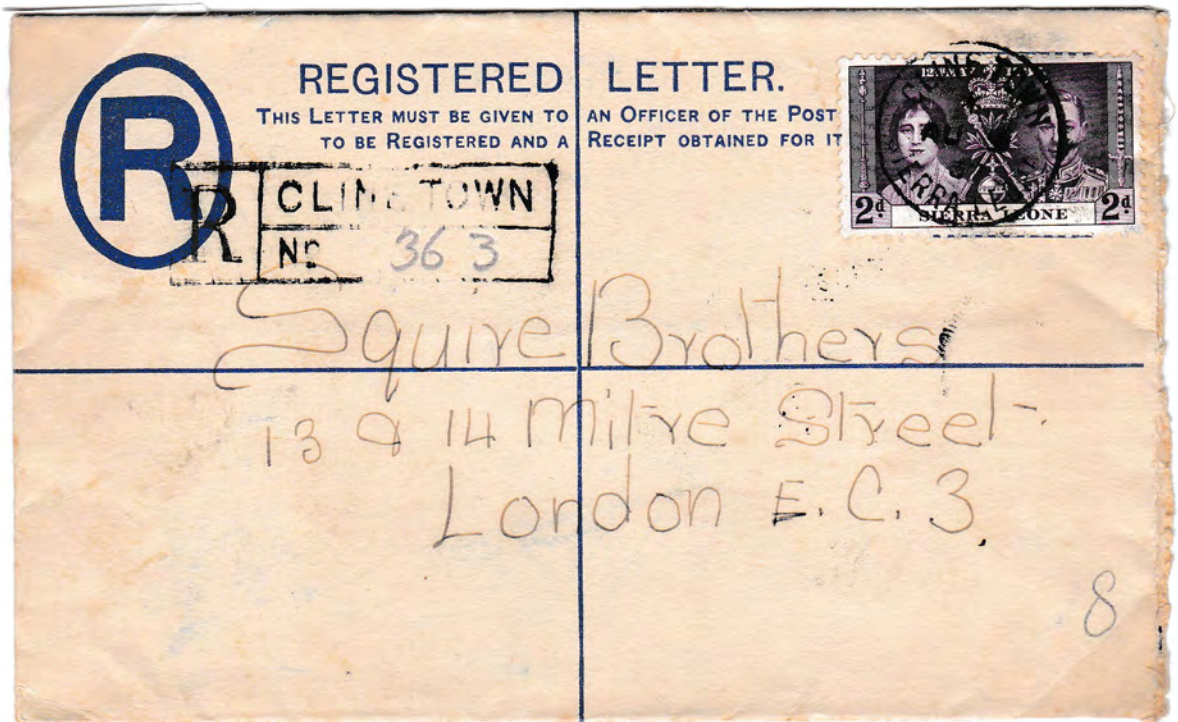 R
REGISTERED LETTER.
THIS LETTER MUST BE GIVEN TO AN OFFICER OF THE POST
TO BE REGISTERED AND A RECEIPT OBTAINED FOR IT
R
CLINE TOWN
No 363
2d SIERRA LEONE 2d
Squire Brothers
13 & 14 Mitre Street.
London E.C. 3.
8